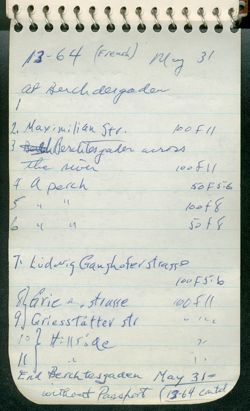 13-64 (French) May 31
at Berchdesgaden
1
2. Maximilian Str. 100 f 11
3 Berchtesgaden across
the river 100 f 11
4 A perch 50 f 5.6
5 " " 100 f 8
6 " " 50 f 8
7. Ludwig Ganghofer strasse
100 f 5.6
8. strasse 100 f 11
9. Griesstätter str " "
10 } Hillside "
11 } " "
End Berchtesgaden May 31-
without Passport (13-64 contd